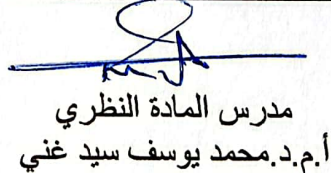 مدرس المادة النظري
أ.م.د.محمد يوسف سيد غني